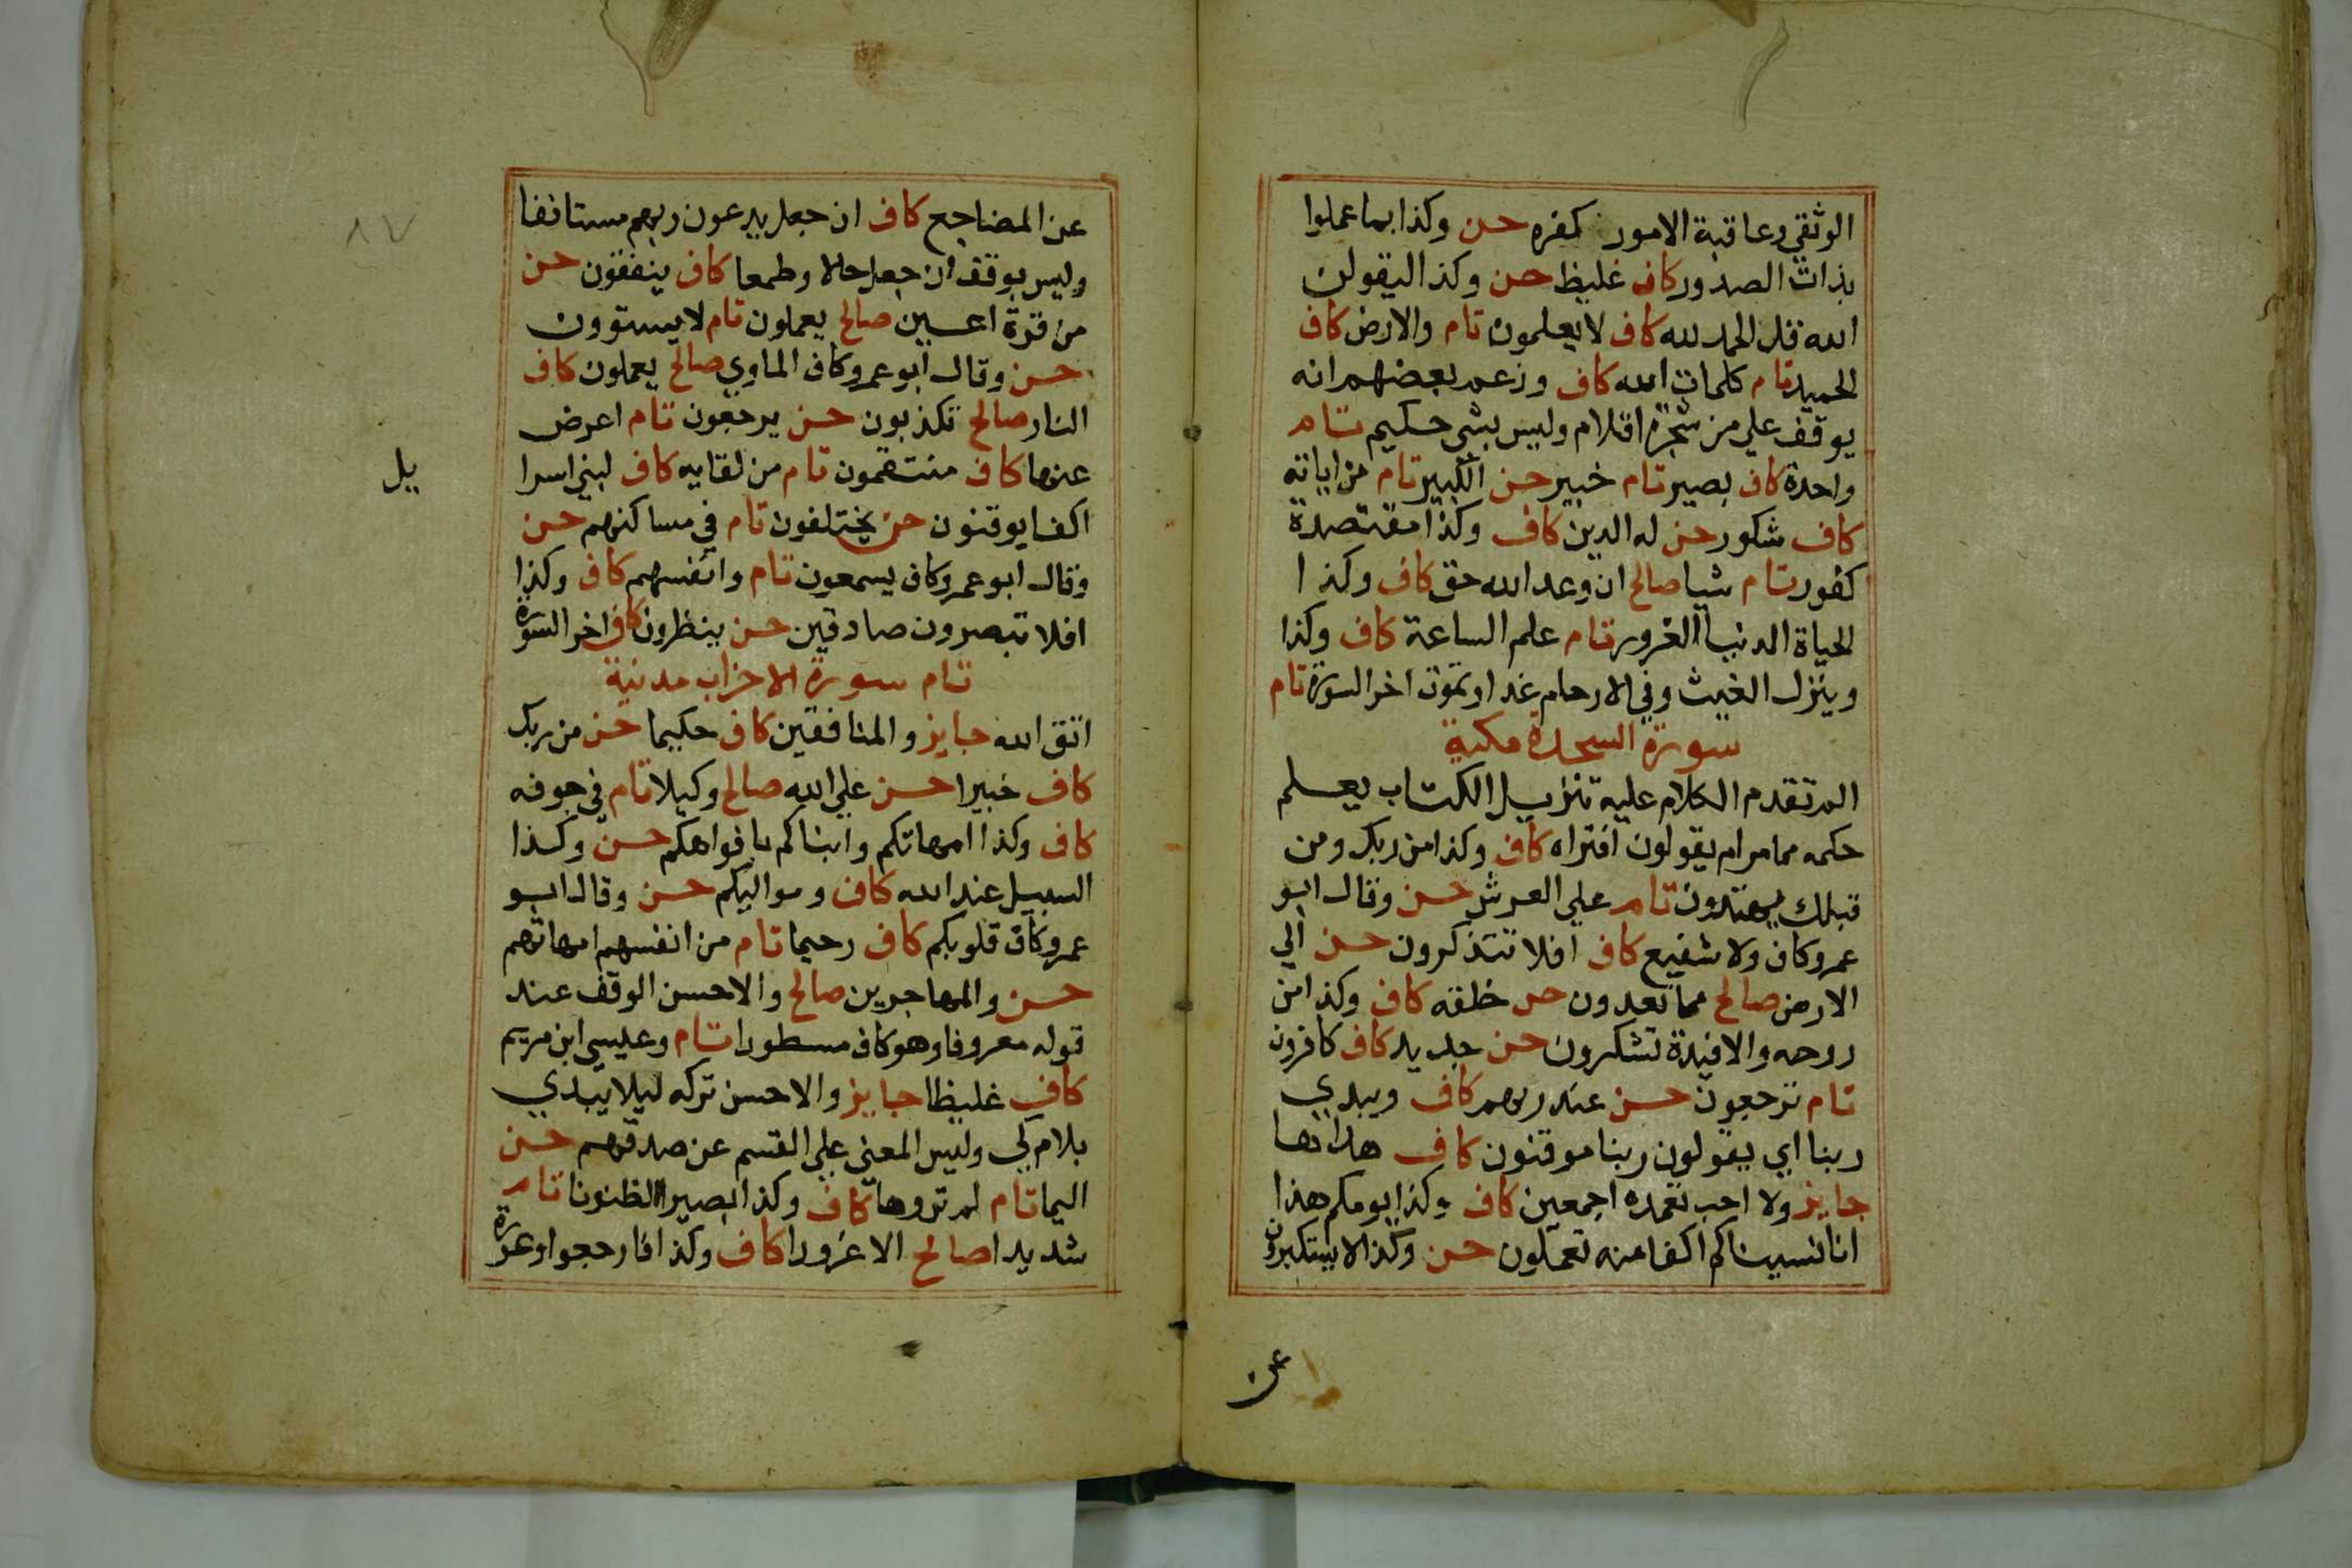 الوثقي وعاقبة الامور كفره حسن وكذا بما عملوا
بذات الصدور كاف غليظ حسن وكذا ليقولن
الله قل الحمد لله كاف لا يعلمون تام والارض كاف
الحميد تام كلمات الله كاف وزعم بعضهم انه
يوقف علي من شجرة اقلام وليس بشي حكيم تام
واحدة كاف بصير تام خبير حسن الكبير تام من اياته
كاف شكور حسن له الدين كاف وكذا مقتصدة
كفور تام شيا صالح ان وعد الله حق كاف وكذا
الحياة الدنيا الغرور تام علم الساعة كاف وكذا
وينزل الغيث وفي الارحام غدا وتموت اخر السورة تام
سورة السجدة مكية
الم تقدم الكلام عليه تنزيل الكتاب يعلم
حكمه مما مر ام يقولون افتراه كاف وكذا من ربك ومن
قبلك يهتدون تام علي العرش حسن وقال ابو
عمرو كاف ولا شفيع كاف افلا تتذكرون حسن الي
الارض صالح مما تعدون حسن خلقه كاف وكذا من
روحه والافيدة تشكرون حسن جديد كاف كافرون
تام ترجعون حسن عند ربهم كاف ويبدي
ربنا اي يقولون ربنا موقنون كاف هداها
جايز ولا احب تعمده اجمعين كاف وكذا يومكم هذا
انا نسيناكم اكفا منه تعملون حسن وكذا لا يستكبرون
عن
عن المضاجع كاف ان جعل يدعون ربهم مستانفا
وليس بوقف ان جعل حالا وطمعا كاف ينفقون حسن
من قرة اعين صالح يعملون تام لا يستوون
حسن وقال ابو عمرو كاف الماوي صالح يعملون كاف
النار صالح تكذبون حسن يرجعون تام اعرض
عنها كاف منتقمون تام من لقايه كاف لبني اسرا
يل
اكفا يوقنون حسن يختلفون تام في مساكنهم حسن
وقال ابو عمرو كاف يسمعون تام وانفسهم كاف وكذا
افلا تبصرون صادقين حسن ينظرون كاف اخر السورة
تام سورة الاحزاب مدنية
اتق الله جايز والمنافقين كاف حكيما حسن من ربك
كاف خبيرا حسن علي الله صالح وكيلا تام في جوفه
كاف وكذا امهاتكم وابناكم بافواهكم حسن وكذا
السبيل عند الله كاف ومواليكم حسن وقال ابو
عمرو كاف قلوبكم كاف رحيما تام من انفسهم امهاتهم
حسن والمهاجرين صالح والاحسن الوقف عند
قوله معروفا وهو كاف مسطورا تام وعيسي ابن مريم
كاف غليظا جايز والاحسن تركه ليلا يبتدي
بلام كي وليس المعني علي القسم عن صدقهم حسن
اليما تام لم تروها كاف وكذا بصيرا الظنونا تام
شديدا صالح الا غرورا كاف وكذا فارجعوا وعورة
٨٧